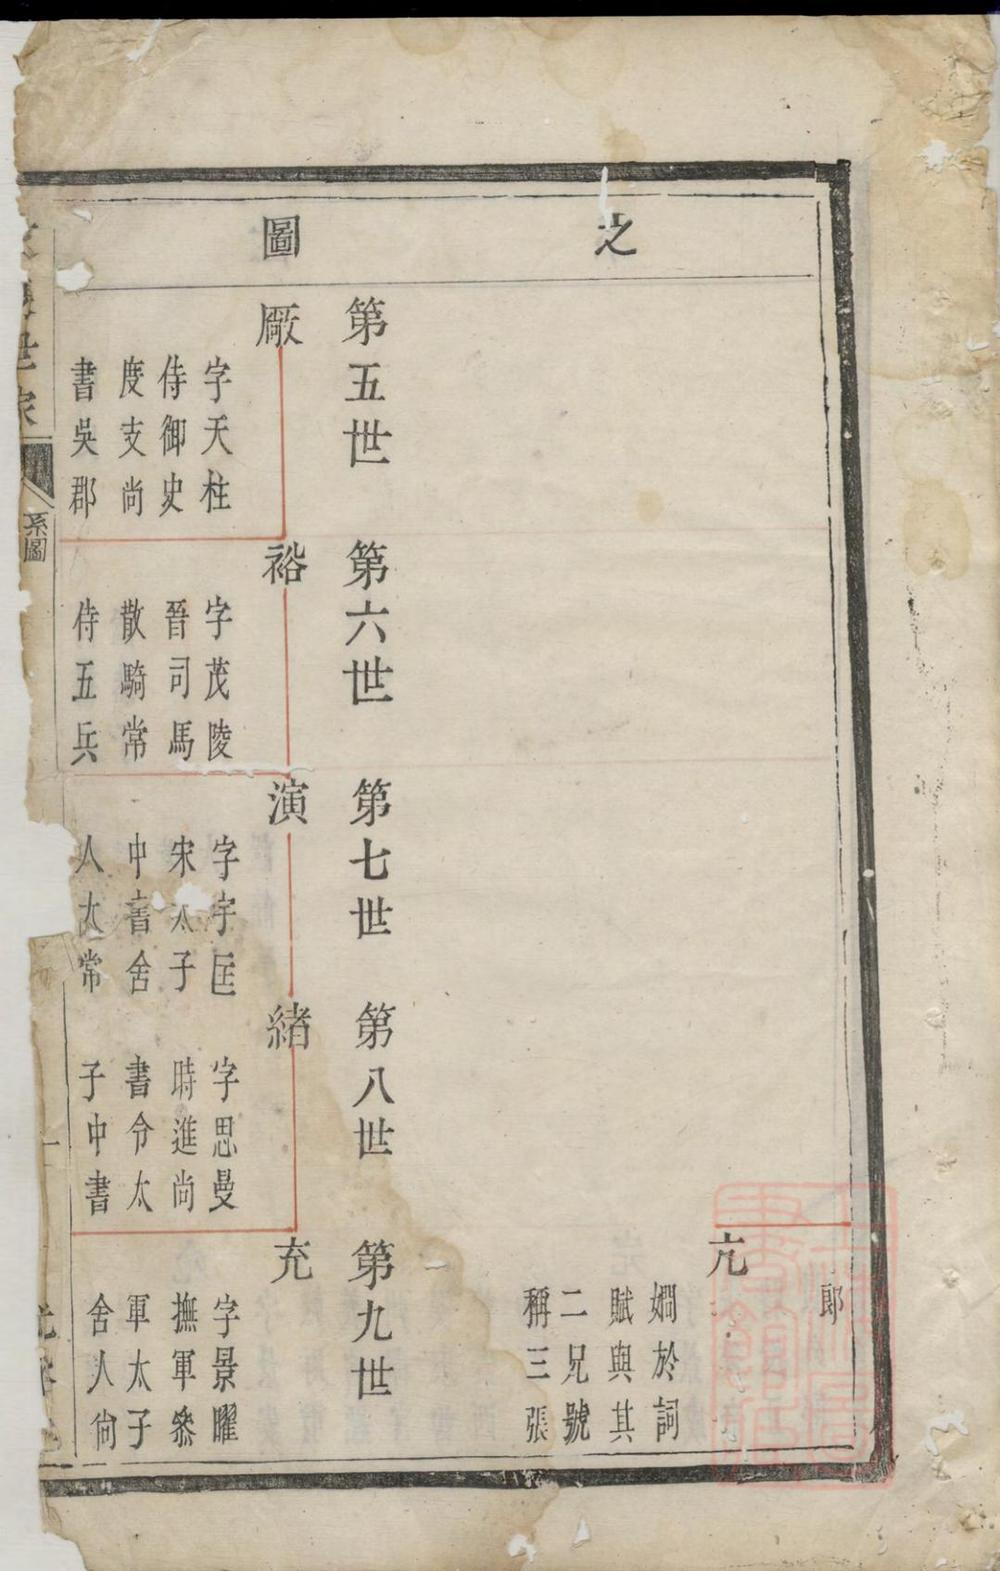 之
圖
郎
亢
嫺於詞
賦與其
二兄號
稱三張
第五世
廠
字天柱
侍御史
度支尚
書吳郡
第六世
裕
字茂陵
晉司馬
散騎常
侍五兵
第七世
演
宋太子
中書舍
人太常
第八世
緒
字思曼
時進尚
書令太
子中書
第九世
充
字景曜
撫軍叅
軍太子
舍人尙
系圖